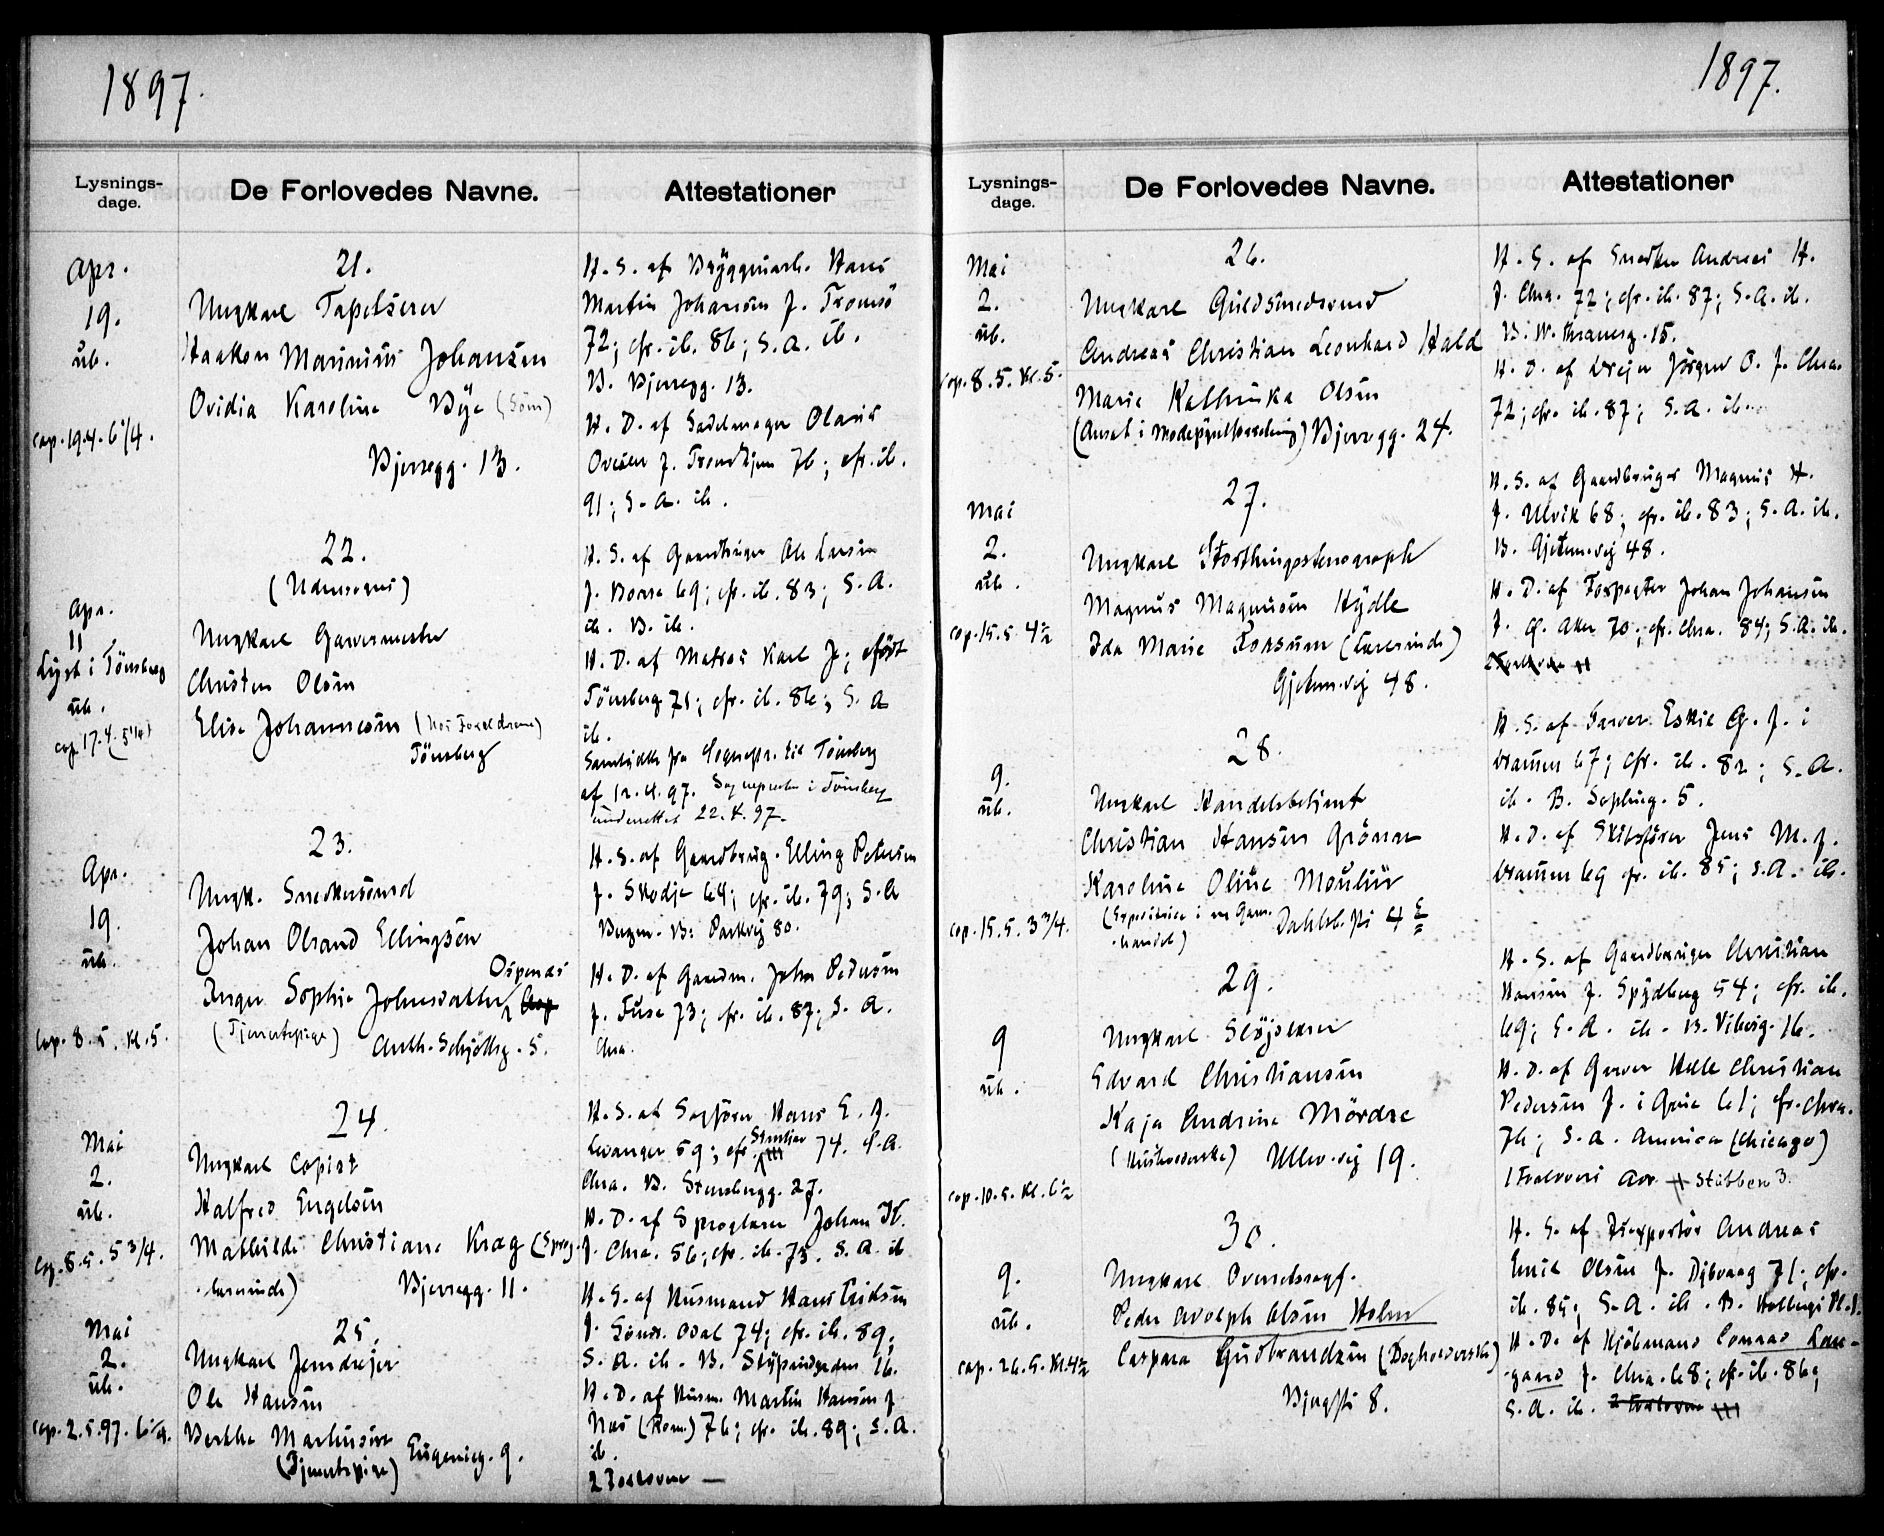 1897.
Lysnings-
dage.
De Forlovedes Navne.
Attestationer
Apr.
19.
üb.
cop. 19.4. 6 1/4.
21.
Ungkarl Tapetserer
Haakon Marinius Johansen
Ovidia Karoline Bye (Söm)
Bjerregg. 13.
H. S. af Bryggeriarb. Hans
Martin Johansen f. Tromsö
72; cfr. ib. 86; S. A. ib.
B. Bjerregg. 13.
H. D. af Sadelmager Olaus
f. Trondhjem 76; cfr. ib.
91; S. A. ib.
Apr.
11
Lyst i Tönsberg
üb.
cop. 17.4. 5 1/4)
22.
(Udensogns)
Ungkarl Garvermester
Christen Olsen
Elise Johannesen (hos Forældrene)
Tönsberg
H. S. af Gaardbruger Ole Larsen
f. Borre 69; cfr. ib. 83; S. A.
ib. B. ib.
H. D. af Matros Karl J; født
Tönsberg 71; cfr. ib. 86; S. A
ib.
Samtykke fra Sognepr. til Tönsberg
af 12.4.97. Sognepresten i Tönsberg
underrettet 22.4.97.
Apr.
19.
üb.
Cop. 8.5. Kl. 5.
23.
Ungk. Snedkersvend
Johan Olsand Ellingsen
Inger Sophie Johnsdatter Ospenæs
(Tjenestepige) Anth. Schjöttsg. 5.
H. S. af Gaardbrug. Elling Petersen
f. Skodje 64; cfr. ib. 79; S. A
Bergen. B: Parkvej 80.
H. D. af Gaardm. John Pedersen
f. Fuse 73; cfr. ib. 87; S. A.
Chra.
Mai
2.
üb.
Cop. 8.5. 5 3/4.
24.
Ungkarl Copist
Halfred Engelsen
Mathilde Christiane Krag (Sprog-
lærerinde) Bjerregg. 11.
H. S. af Sagförer Hans E. f.
Levanger 59; cfr. 74. S. A.
Chra. B. Stensbergg. 27.
H. D. af Sproglærer Johan K.
f. Chra. 56; cfr. ib. 73. S. A. ib
Mai
2.
üb.
cop. 2.5.97. 6 1/4.
25.
Ungkarl Jerndreier
Ole Hansen
Berthe Marthisen
(Tjenestepige) Eugenieg. 9.
H. S. af Husmand Hans Eriksen
f. Söndr. Odal 74; cfr. ib. 89;
S. A. ib. B. 16.
H. D. af Husm. Martin Hansen f
Næs (Rom.) 76; cfr. ib. 89; S. A.
ib.
2 Forlovere —
1897.
Lysnings-
dage.
De Forlovedes Navne.
Attestationer
Mai
2.
üb.
cop. 8.5. Kl. 5.
26.
Ungkarl Guldsmedsvend
Andreas Christian Leonhard Hald
Marie Kathinka Olsen
(Ansat i Modepyntforretning) Bjerregg. 24.
H. S. af Snedker Andreas H.
f. Chra. 72; cfr. ib. 87; S. A. ib.
B. W. Thranesg. 15.
H. D. af Dreier Jörgen O. f. Chra.
72; cfr. ib. 87; S. A. ib.
Mai
2.
üb.
cop. 15.5. 4 1/2
27.
Ungkarl Storthingsstenograph
Magnus Magnusen Hydle
Ida Marie Forsum (Lærerinde)
Gjetem.vej 48.
H. S. af Gaardbruger Magnus H.
f. Ulvik 68; cfr. ib. 83; S. A. ib.
B. Gjetem.vej 48.
H. D. af Forpagter Johan Johansen
f. Ø. Aker 70; cfr. Chra. 84; S. A. ib.
2 Forlovere
9.
üb.
cop. 15.5. 3 3/4.
28.
Ungkarl Handelsbetjent
Christian Hansen Grönner
Karoline Oline Moulür
(Expeditrice i en Garn-
handel) Dahlsb.sti 4 E
H. S. af Garver Eskil G. f. i
Drammen 67; cfr. ib. 82; S. A.
ib. B. Sophieg. 5.
H. D. af Skibsfører Jens M. f.
Drammen 69 cfr. ib. 85; S. A. ib.
9
üb.
cop. 10.5. Kl. 6 1/2
29.
Ungkarl Slöjdlærer
Edvard Christiansen
Kaja Andrine Mördre
(Husholderske) Ullev.vej 19.
H. S. af Gaardbruger Christian
Hansen f. Spydberg 54; cfr. ib.
69; S. A. ib. B. Vibesg. 16.
H. D. af Garver Helle Christian
Pedersen f. i Grue 61; cfr. Chra.
76; S. A. America (Chicago)
1 Forlover Stubben 3.
9.
üb.
cop. 26.5. Kl. 4 1/2
30.
Ungkarl
Peder Adolph Olsen Holm
Caspara Gudbrandsen (Bogholderske)
Bjergsti 8.
H. S. af Andreas
Emil Olsen f. Dybvaag 71; cfr.
ib. 85; S. A. ib. B. Holbergs Pl. 1.
H. D. af Kjöbmand Conrad Lan-
gaard f. Chra. 68; cfr. ib. 86;
S. A. ib. 2 Forlovere